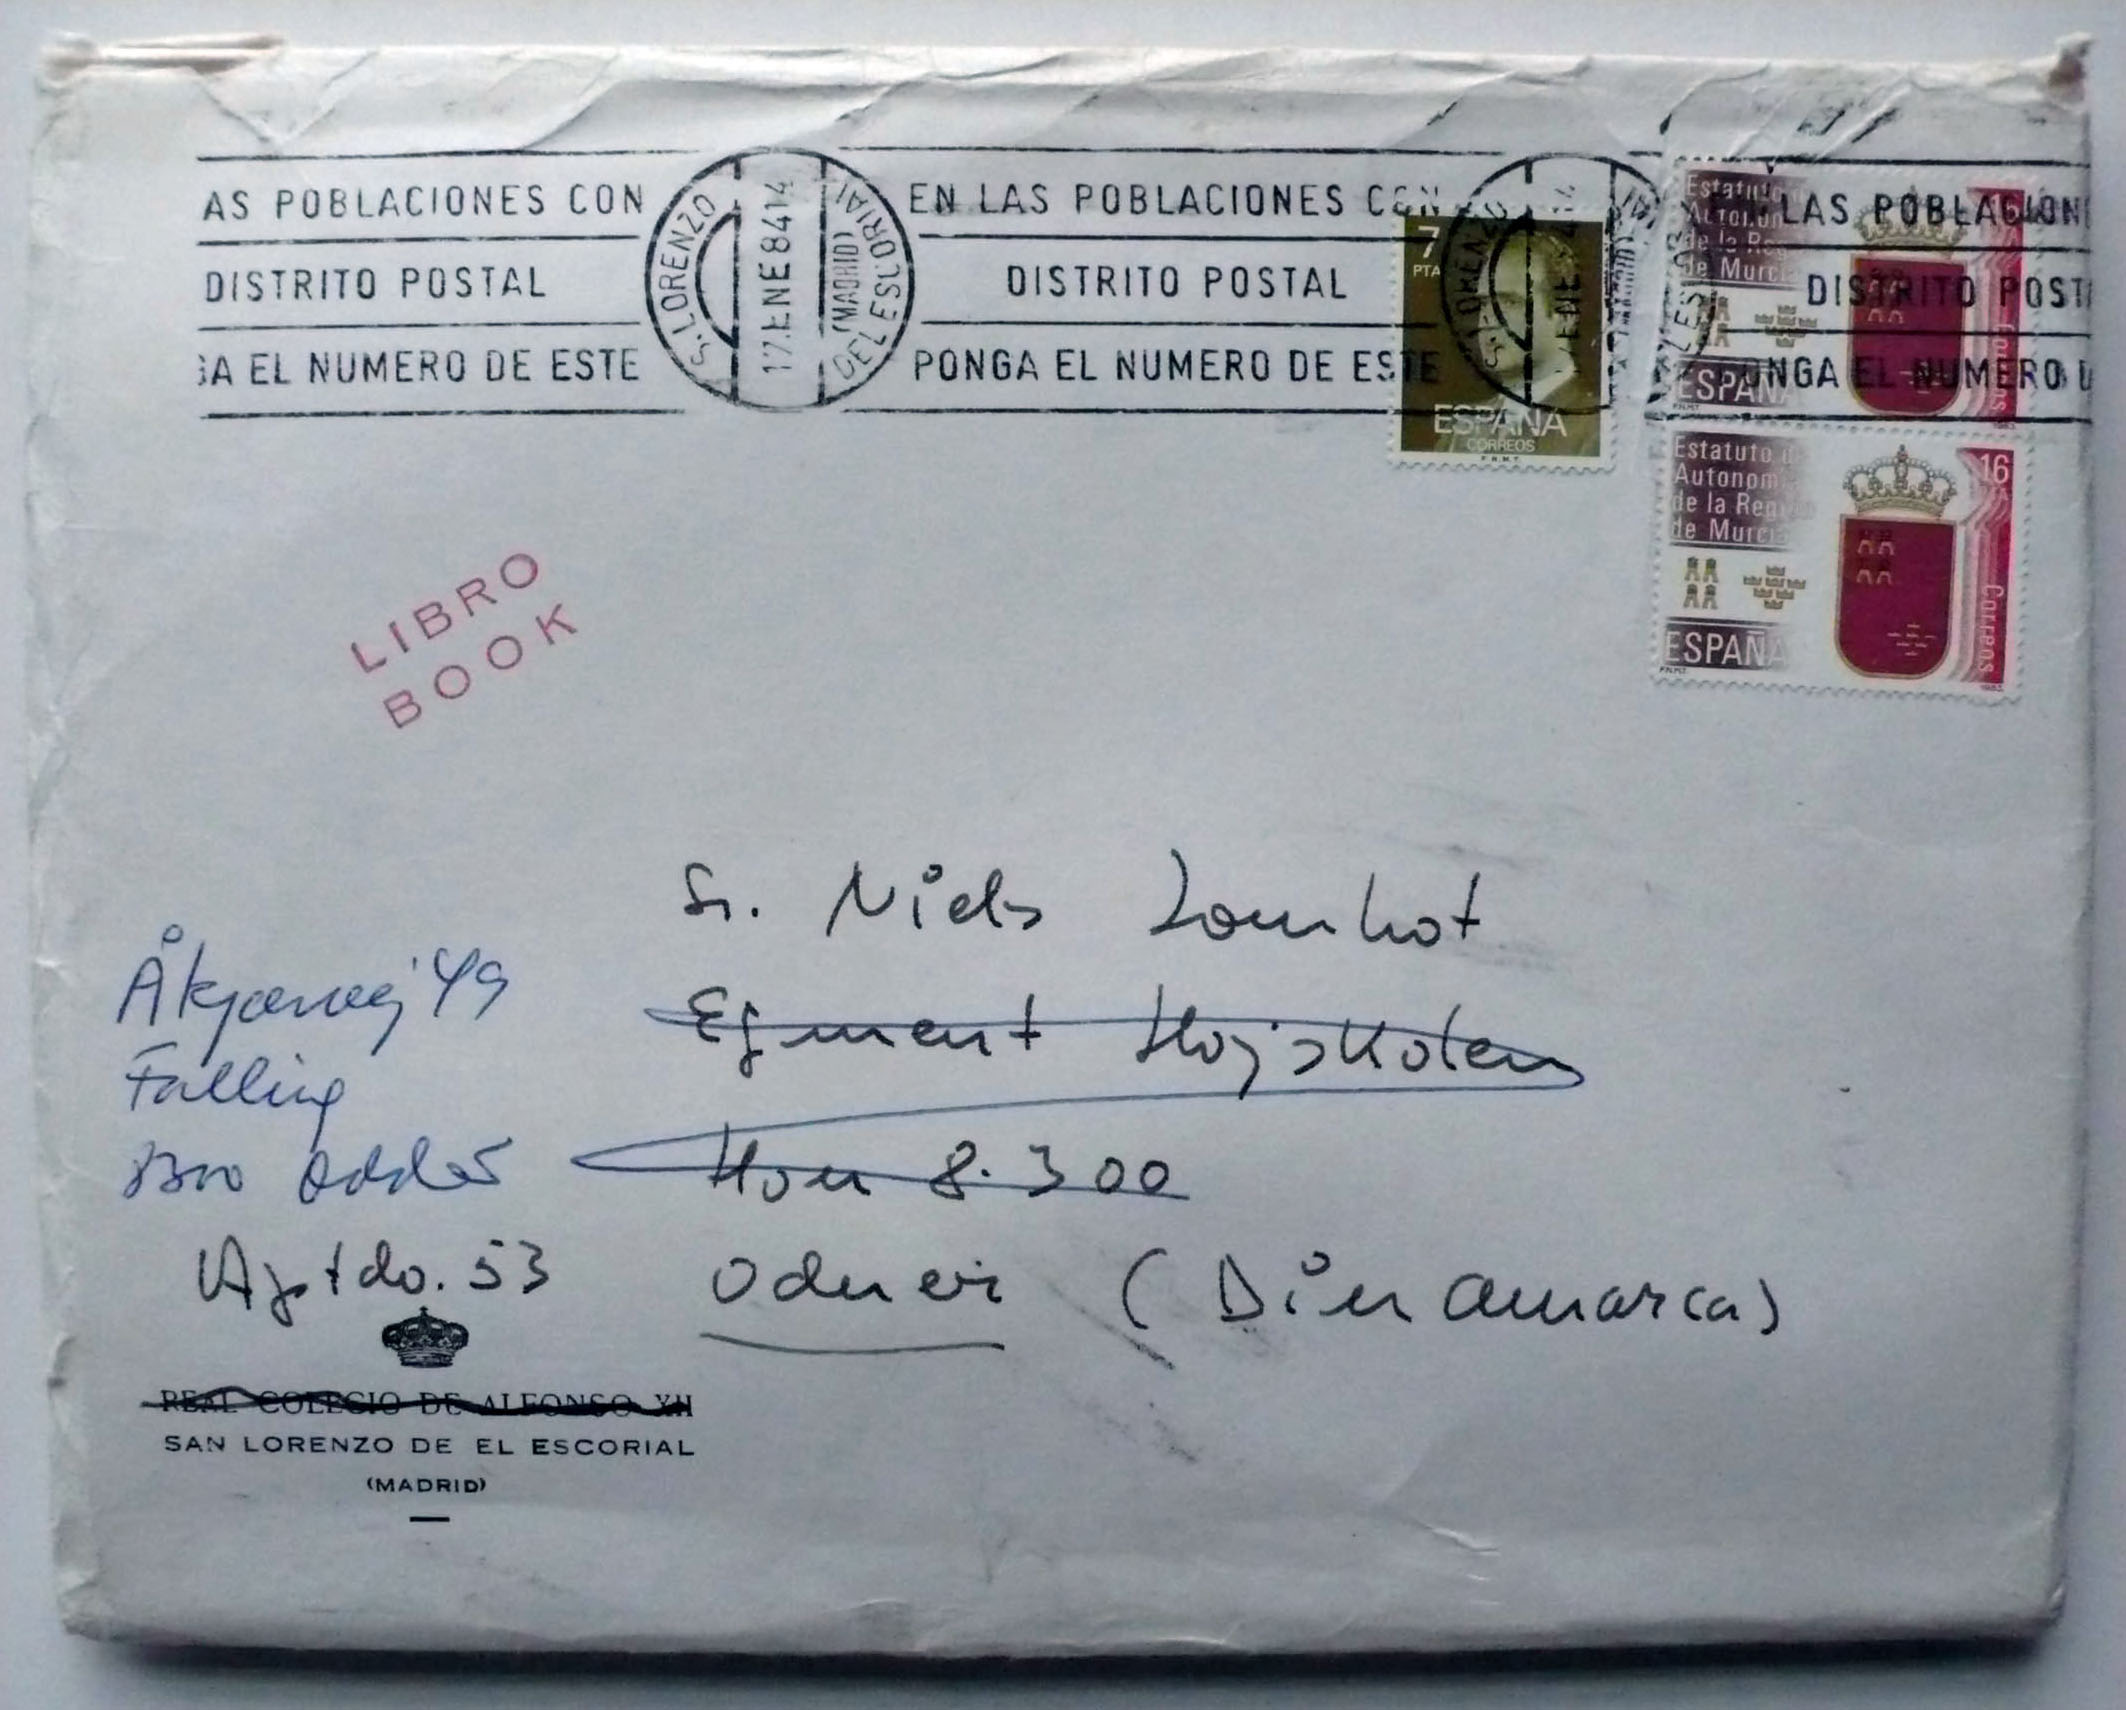 AS POBLACIONES CON
DISTRITO POSTAL
GA EL NUMERO DE ESTE
S. LORENZO
17. ENE 84 14
(MADRID)
DEL ESCORIAL
EN LAS POBLACIONES CON
DISTRITO POSTAL
PONGA EL NUMERO DE ESTE
S. LORENZO
ENE
7
PTA
ESPAÑA
CORREOS
F.N.M.T.
EN LAS POBLACIONE
DISTRITO POST
PONGA EL NUMERO D
Estatuto d
Autonom
de la Reg
de Murci
16
ESPAÑA
Correos
Estatuto d
Autonom
de la Regi
de Murcia
16
ESPAÑA
Correos
F.N.M.T.
1983
LIBRO
BOOK
Sr. Niels Lomhot
Egment Hojskolen
Hou 8.300
Odder (Dinamarca)
Åkjærvej 49
Falling
8300 Odder
Aptdo. 53
REAL COLEGIO DE ALFONSO XII
SAN LORENZO DE EL ESCORIAL
(MADRID)